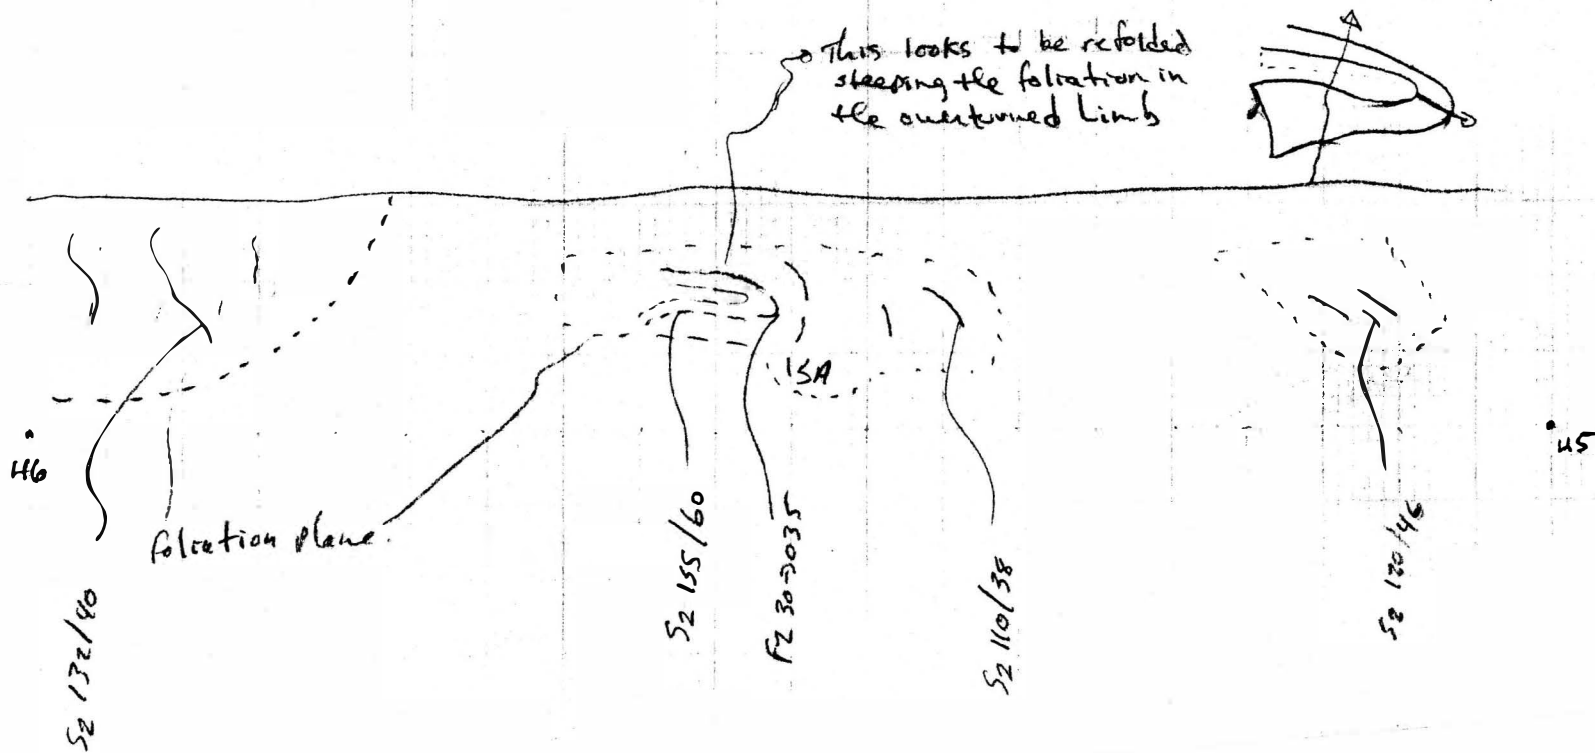 This looks to be refolded
steeping the foliation in
the overturned Limb
15A
H6
H5
foliation plane.
S2 132/40
S2 155/60
F2 30→035
S2 110/38
S2 120/46